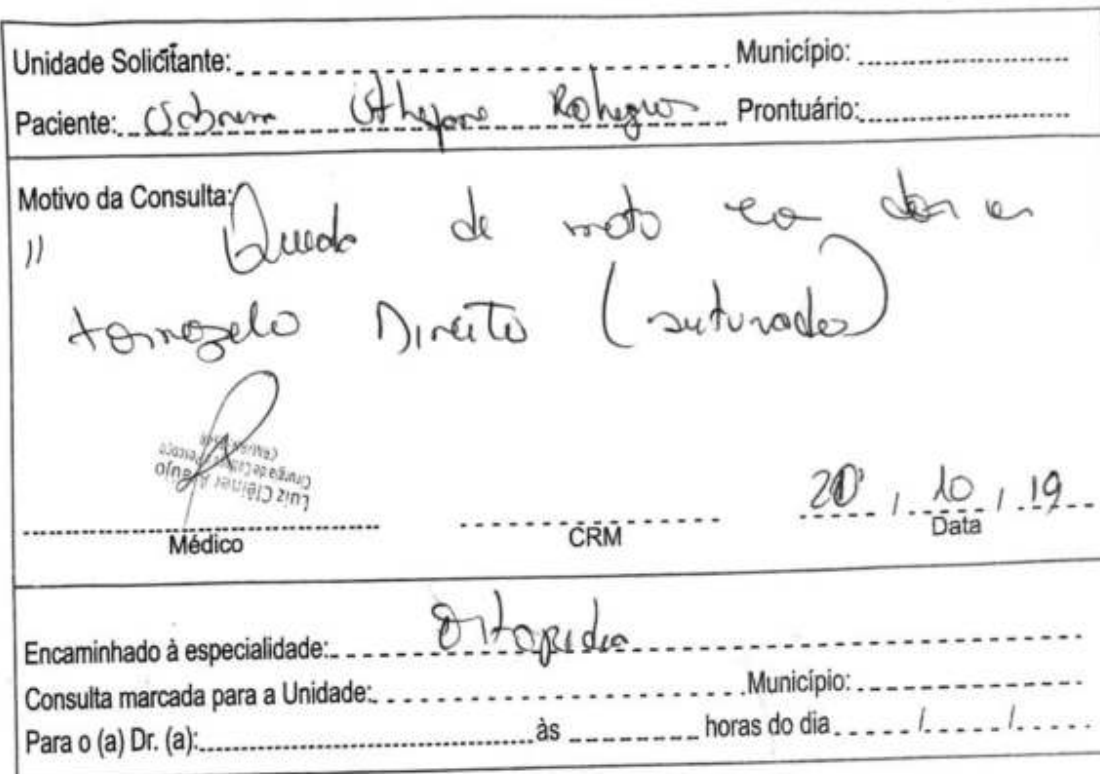 Unidade Solicitante: Município:
Paciente: Prontuário:
Motivo da Consulta:
" Queda de moto co dor em
tornozelo Direito (suturado)
Luiz Araujo
Cirurgia de Cabeça e Pescoço
Médico CRM Data
20 / 10 / 19
Encaminhado à especialidade: Ortopedia
Consulta marcada para a Unidade: Município:
Para o (a) Dr. (a): às horas do dia / /